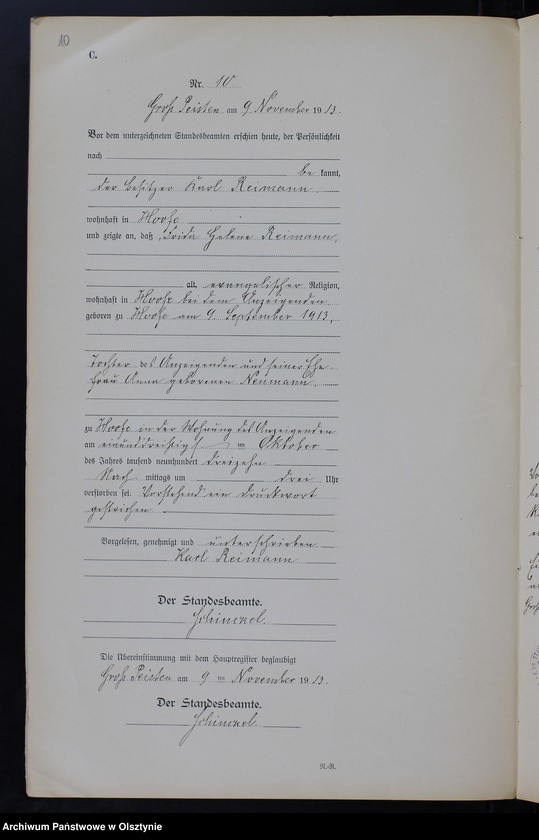 10
C.
Nr. 10
Groß Peisten am 9 November 1913.
Vor dem unterzeichneten Standesbeamten erschien heute, der Persönlichkeit
nach
be kannt,
der Besitzer Karl Reimann
wohnhaft in Hoofe
und zeigte an, daß Frida Helene Reimann,
alt, evangelischer Religion,
wohnhaft in Hoofe bei dem Anzeigenden
geboren zu Hoofe am 9. September 1913,
Tochter des Anzeigenden und seiner Ehe-
frau Anna geborenen Neumann,
zu Hoofe in der Wohnung des Anzeigenden
am einunddreißigsten Oktober
des Jahres tausend neunhundert dreizehn
Nach mittags um drei Uhr
verstorben sei. Vorstehend ein Druckwort
gestrichen
Vorgelesen, genehmigt und unterschrieben
Karl Reimann
Der Standesbeamte.
Schinckel.
Die Übereinstimmung mit dem Hauptregister beglaubigt
Groß Peisten am 9 ten November 1913.
Der Standesbeamte.
Schinckel.
N.-R.
Archiwum Państwowe w Olsztynie